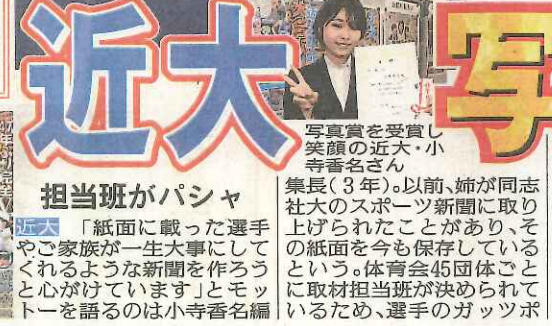 近大
写
写真賞を受賞し
笑顔の近大・小
寺香名さん
担当班がパシャ
近大 「紙面に載った選手
やご家族が一生大事にして
くれるような新聞を作ろう
と心がけています」とモッ
トーを語るのは小寺香名編
集長(3年)。以前、姉が同志
社大のスポーツ新聞に取り
上げられたことがあり、そ
の紙面を今も保存している
という。体育会45団体ごと
に取材担当班が決められて
いるため、選手のガッツポ